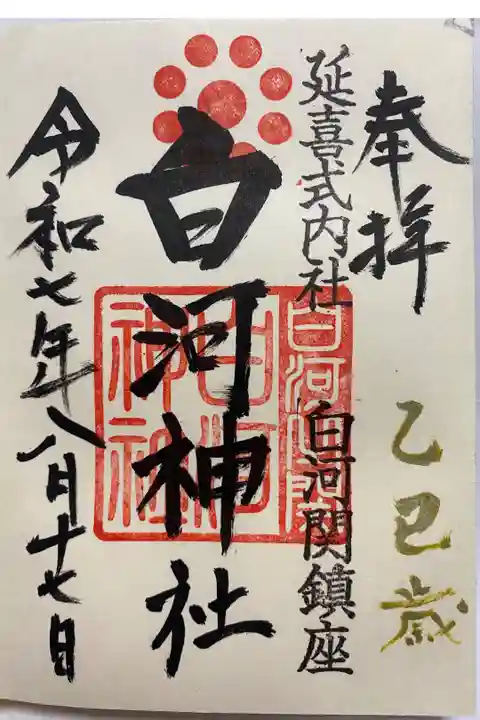 奉拝
乙巳歳
延喜式内社 白河関鎮座
白河神社
白河関
白河
神社
令和七年八月十七日